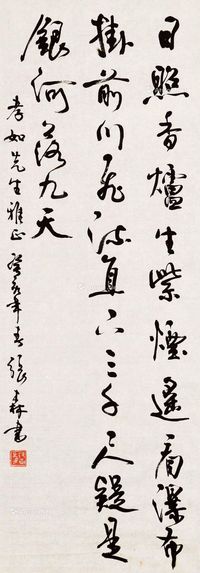 日照香爐生紫煙遙看瀑布
掛前川飛流直下三千尺疑是
銀河落九天
孝如先生雅正 癸亥年春 張森書